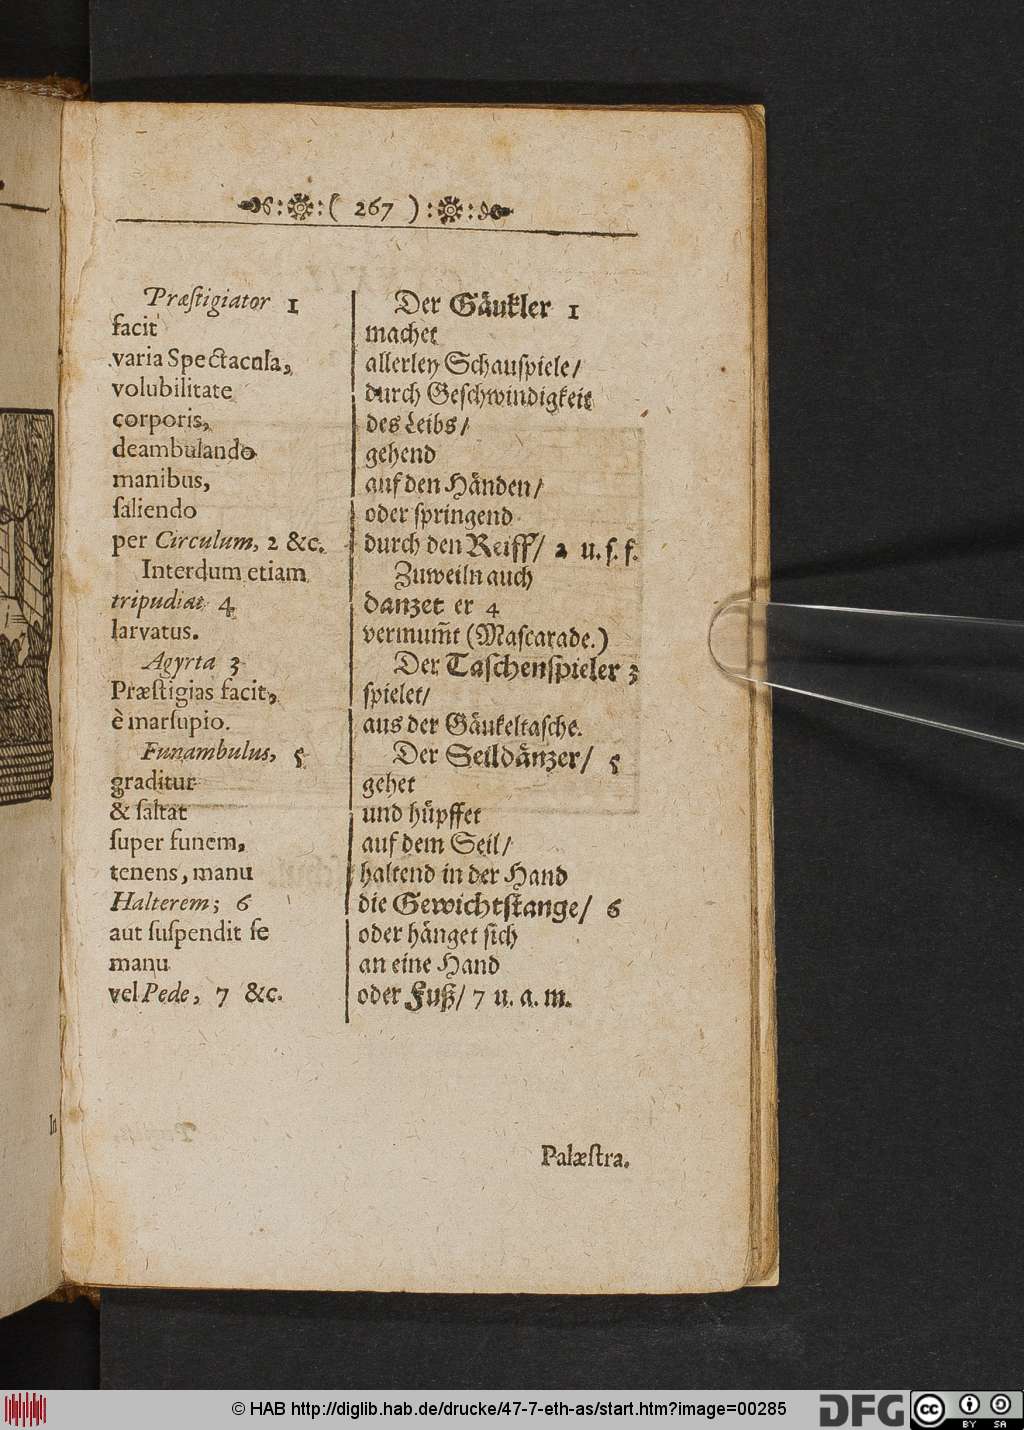 ( 267 )
Præſtigiator 1
facit
varia Spectacula,
volubilitate
corporis,
deambulando
manibus,
ſaliendo
per Circulum, 2 &c.
Interdum etiam
tripudiat 4
larvatus.
Agyrta 3
Præſtigias facit,
è marſupio.
Funambulus, 5
graditur
& ſaltat
ſuper funem,
tenens, manu
Halterem; 6
aut ſuſpendit ſe
manu
vel Pede, 7 &c.
Der Gäukler 1
machet
allerley Schauſpiele/
durch Geſchwindigkeit
des Leibs/
gehend
auf den Händen/
oder ſpringend
durch den Reiff/ 2 u. ſ. f.
Zuweiln auch
danzet er 4
vermum̃t (Maſcarade.)
Der Taſchenſpieler 3
ſpielet/
aus der Gäukeltaſche.
Der Seildänzer/ 5
gehet
und hüpffet
auf dem Seil/
haltend in der Hand
die Gewichtſtange/ 6
oder hänget ſich
an eine Hand
oder Fuß/ 7 u. a. m.
Palæſtra.
In
© HAB http://diglib.hab.de/drucke/47-7-eth-as/start.htm?image=00285
DFG
cc BY SA